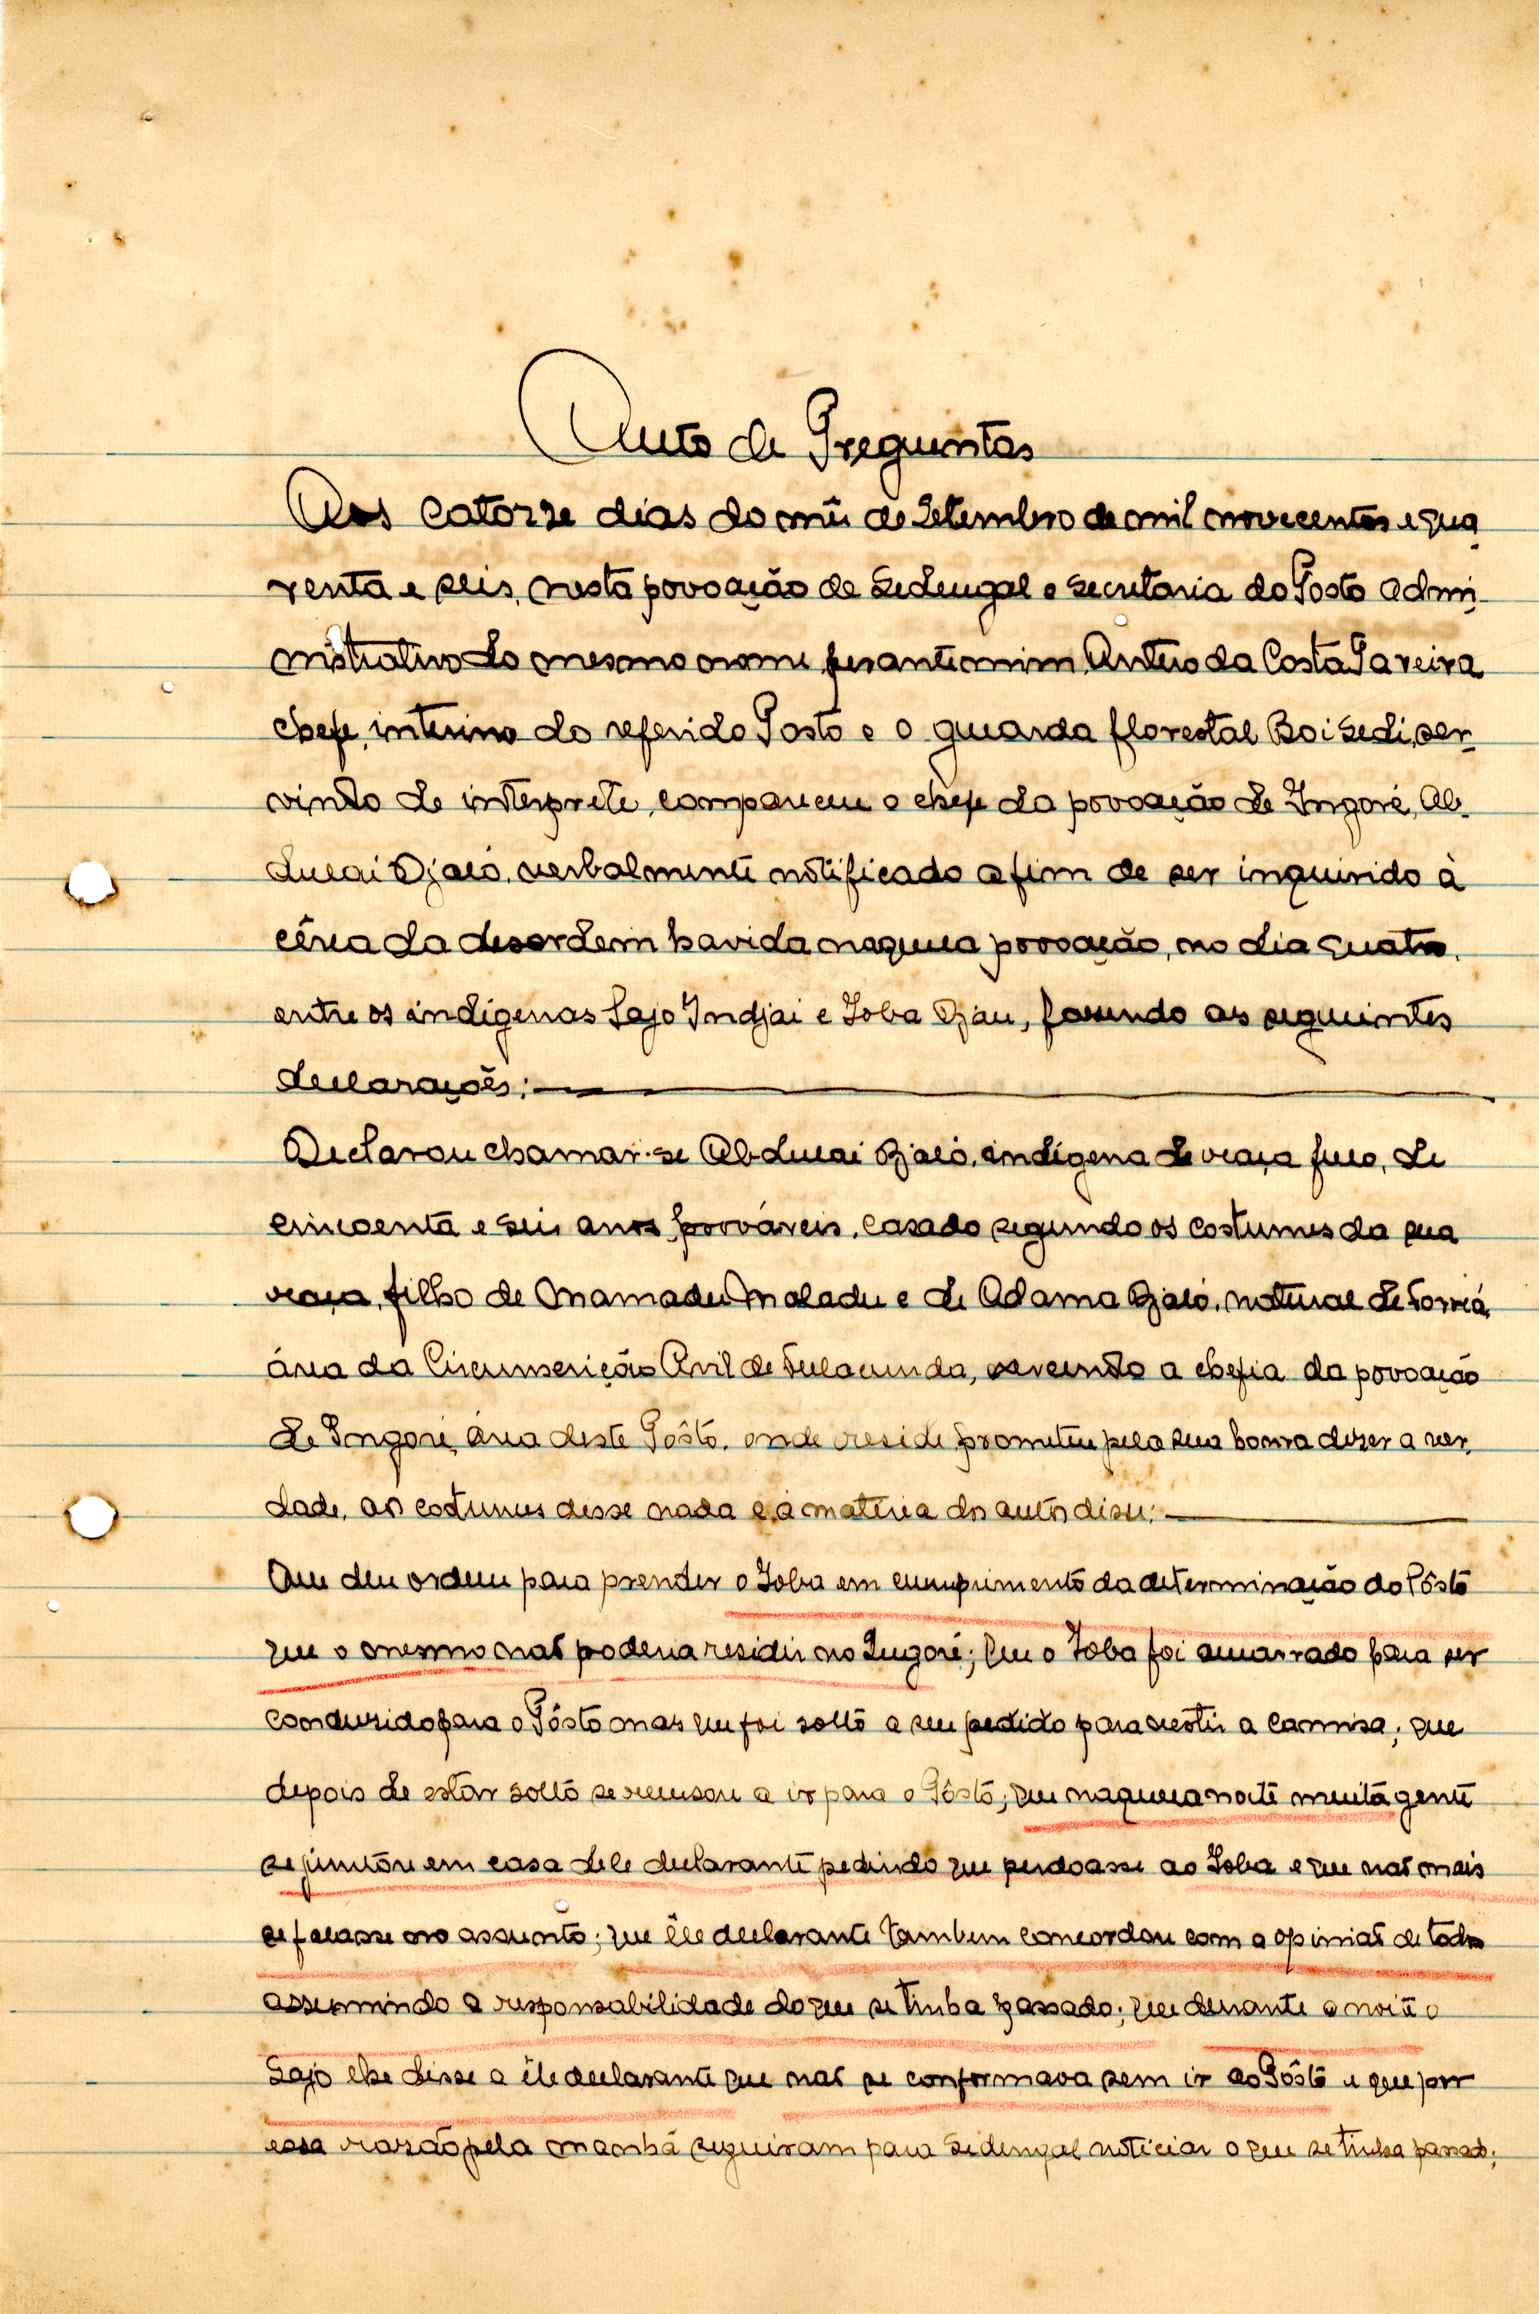 Auto de Preguntas
Aos catorze dias do mês de Setembro de mil novecentos e qua
renta e seis, nesta povoação de Sedengal e secretaria do Posto Admi-
nistrativo do mesmo nome perante mim, Antero da Costa Pareira
chefe, interino do referido Posto e o guarda florestal Boi Sedi, ser-
vindo de interprete, compareceu o chefe da povoação de Ingoré, Ab-
dulai Djaló, verbalmente notificado afim de ser inquirido à
cêrca da desordem havida naquela povoação, no dia quatro,
entre os indígenas Sajo Indjai e Ioba Djau, fazendo as seguintes
declarações:
Declarou chamar-se Abdulai Djaló, indígena de raça fulo, de
cincoenta e seis anos prováveis, casado segundo os costumes da sua
raça, filho de Mamadu Maladu e de Adama Djaló, natural de Forriá,
área da Circunscrição Civil de Fulacunda, exercendo a chefia da povoação
de Ingoré, área deste Pôsto, onde reside prometeu pela sua honra dizer a ver-
dade, aos costumes disse nada e à matéria dos autos disse:
Que deu ordem para prender o Ioba em cumprimento da determinação do Pôsto
que o mesmo não poderia residir no Ingoré; que o Ioba foi amarrado para ser
conduzido para o Pôsto mas que foi solto a seu pedido para vestir a camisa; que
depois de estar solto se recusou a ir para o Pôsto; que naquela noite muita gente
se juntou em casa dele declarante pedindo que perdoasse ao Ioba e que não mais
se falasse no assunto; que êle declarante tambem concordou com a opinião de todos
assumindo a responsabilidade do que se tinha passado; que durante a noite o
Sajo lhe disse a êle declarante que não se conformava sem ir ao Pôsto e que por
essa razão pela manhã seguiram para Sedengal noticiar o que se tinha passado;